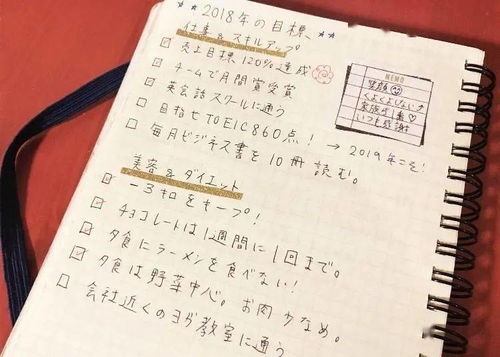 2018年の目標、
仕事&スキルアップ
売上目標、120%達成
チームで月間賞受賞
英会話スクールに通う
目指せTOEIC860点! → 2019年こそ!
毎月ビジネス書を10冊読む。
MEMO
笑顔
くよくよしない
家族が1番♡
いつも感謝
美容&ダイエット
-3キロをキープ!
チョコレートは1週間に1回まで。
夕食にラーメンを食べない!
夕食は野菜中心。お肉少なめ。
会社近くのヨガ教室に通う